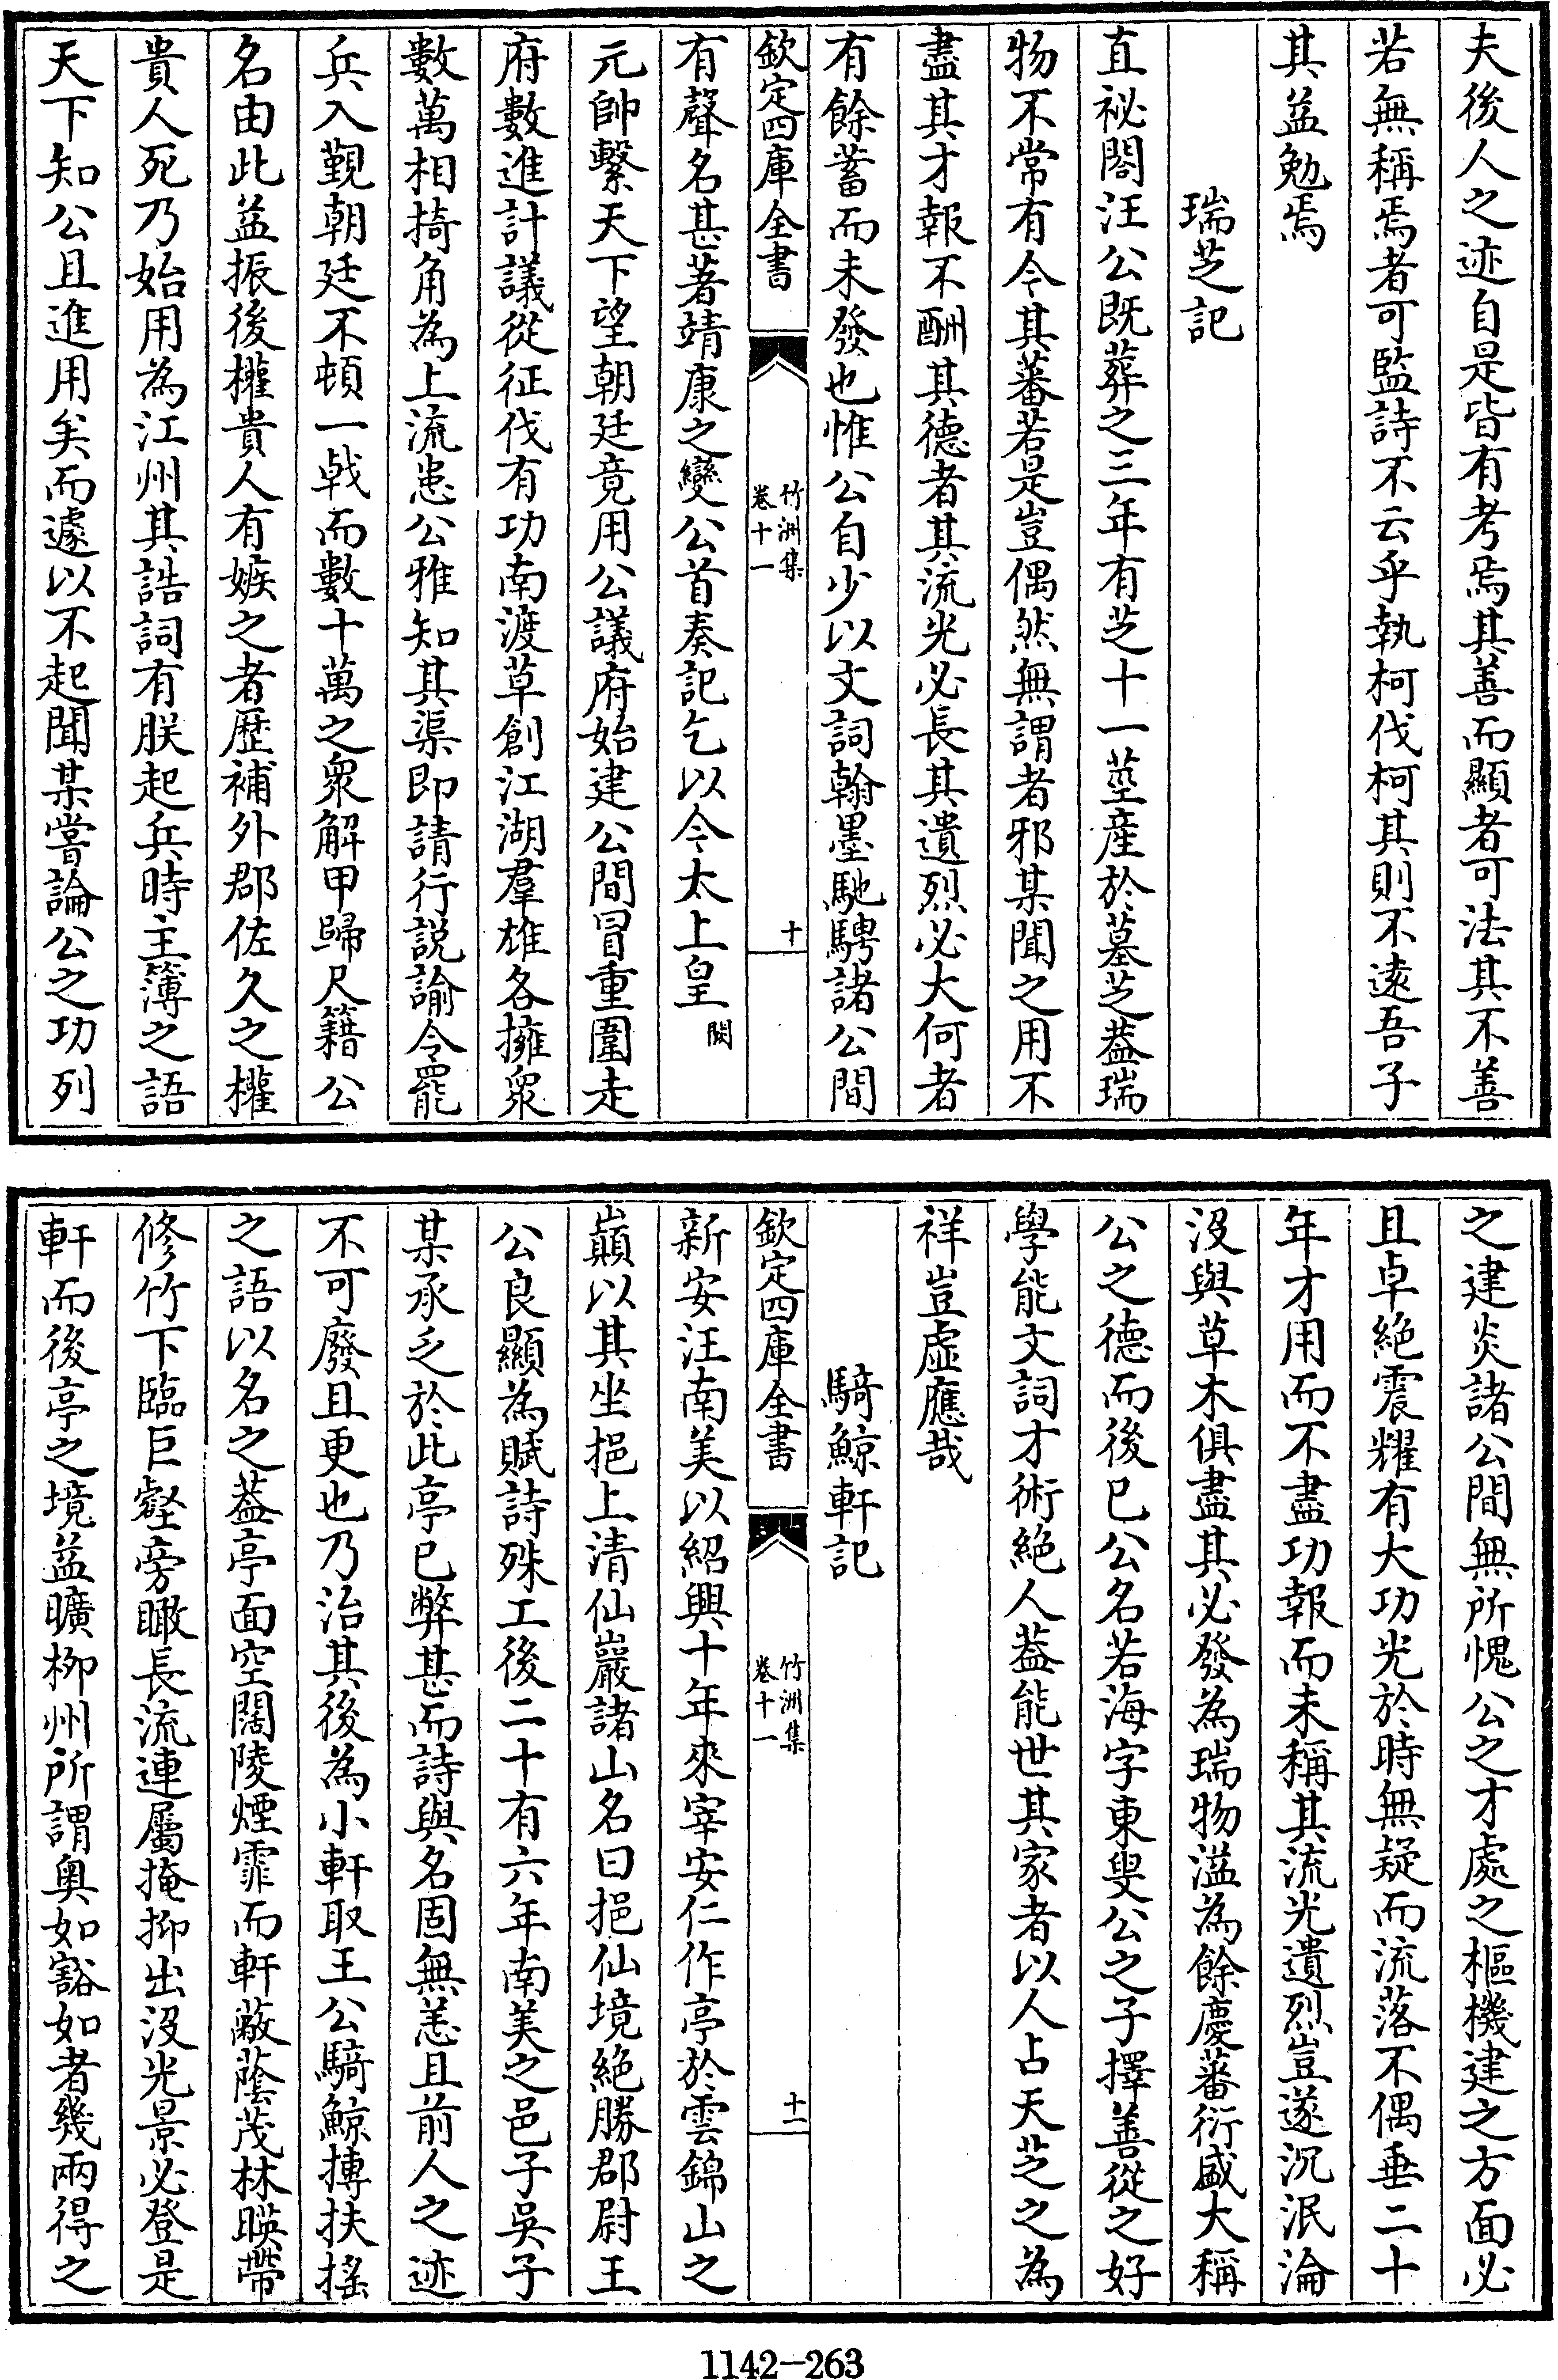 夫後人之迹自是皆有考焉其善而顯者可法其不善
若無稱焉者可監詩不云乎執柯伐柯其則不遠吾子
其益勉焉
瑞芝記
直祕閣汪公既葬之三年有芝十一莖産於墓芝葢瑞
物不常有今其蕃若是豈偶然無謂者邪某聞之用不
盡其才報不酬其德者其流光必長其遺烈必大何者
有餘蓄而未發也惟公自少以文詞翰墨馳騁諸公間
欽定四庫全書
竹洲集
卷十一
十
有聲名甚著靖康之變公首奏記乞以今太上皇闕
元帥繫天下望朝廷竟用公議府始建公間冒重圍走
府數進計議從征伐有功南渡草創江湖羣雄各擁衆
數萬相掎角為上流患公雅知其渠即請行説諭令罷
兵入覲朝廷不頓一㦸而數十萬之衆解甲歸尺籍公
名由此益振後權貴人有嫉之者歴補外郡佐久之權
貴人死乃始用為江州其誥詞有朕起兵時主簿之語
天下知公且進用矣而遽以不起聞某嘗論公之功列
之建炎諸公間無所愧公之才處之樞機建之方面必
且卓絶震耀有大功光於時無疑而流落不偶垂二十
年才用而不盡功報而未稱其流光遺烈豈遂沉泯淪
沒與草木俱盡其必發為瑞物溢為餘慶蕃衍盛大稱
公之德而後已公名若海字東叟公之子擇善從之好
學能文詞才術絶人葢能世其家者以人占天芝之為
祥豈虚應哉
騎鯨軒記
欽定四庫全書
竹洲集
卷十一
十一
新安汪南美以紹興十年來宰安仁作亭於雲錦山之
巔以其坐挹上清仙巖諸山名曰挹仙境絶勝郡尉王
公良顯為賦詩殊工後二十有六年南美之邑子吳子
某承乏於此亭已弊甚而詩與名固無恙且前人之迹
不可廢且更也乃治其後為小軒取王公騎鯨摶扶摇
之語以名之葢亭面空闊陵煙霏而軒蔽蔭茂林暎帶
修竹下臨巨壑旁瞰長流連屬掩抑出沒光景必登是
軒而後亭之境益曠柳州所謂奥如豁如者幾兩得之
1142-263